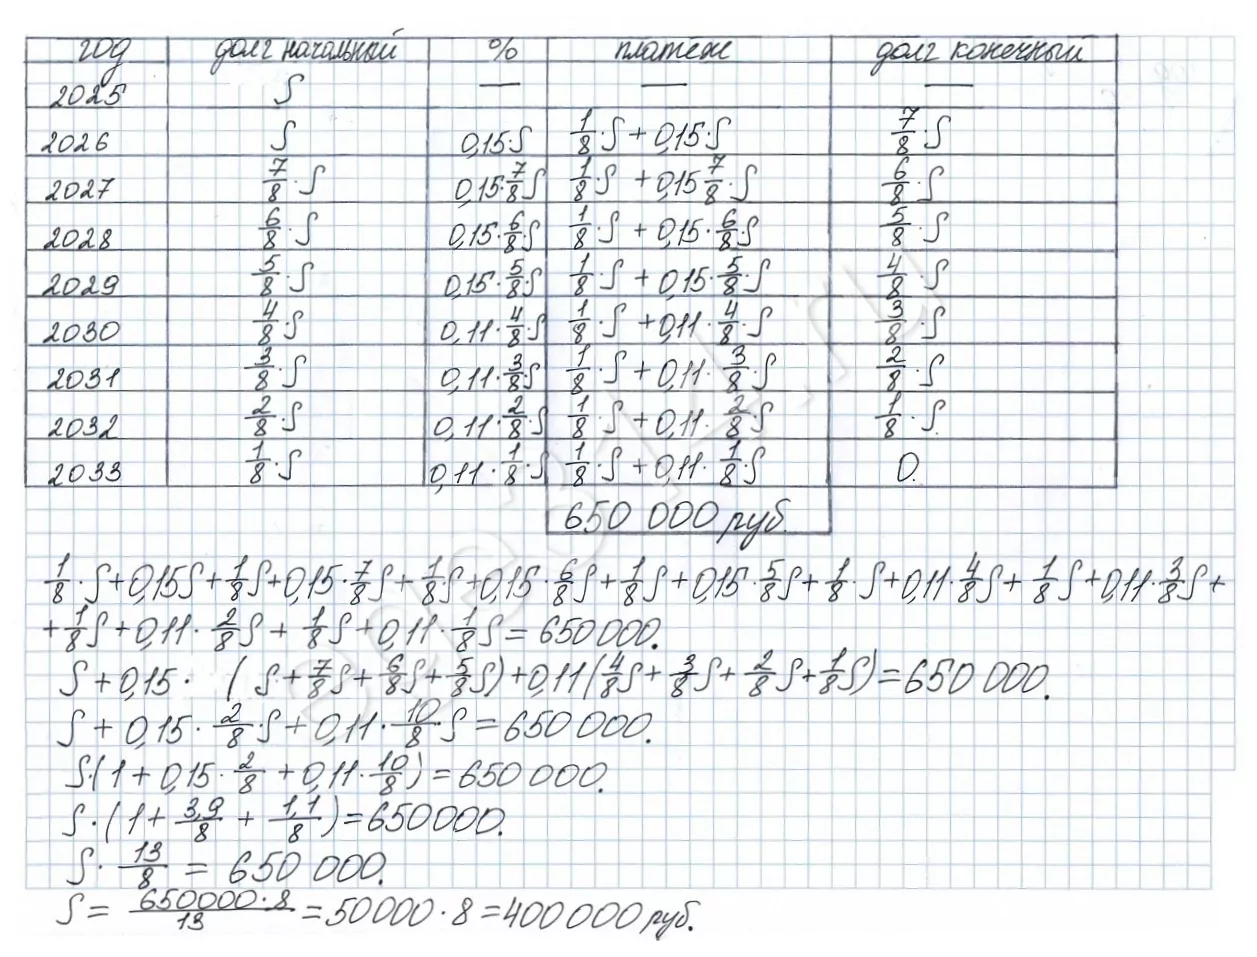 год долг начальный % платеж долг конечный
2025 S — — —
2026 S 0,15·S 1/8·S + 0,15·S 7/8·S
2027 7/8·S 0,15·7/8S 1/8·S + 0,15 7/8·S 6/8·S
2028 6/8·S 0,15·6/8·S 1/8·S + 0,15·6/8·S 5/8·S
2029 5/8·S 0,15·5/8·S 1/8·S + 0,15·5/8·S 4/8·S
2030 4/8·S 0,11·4/8·S 1/8·S + 0,11·4/8·S 3/8·S
2031 3/8·S 0,11·3/8·S 1/8·S + 0,11·3/8·S 2/8·S
2032 2/8·S 0,11·2/8·S 1/8·S + 0,11·2/8·S 1/8·S.
2033 1/8·S 0,11·1/8·S 1/8·S + 0,11·1/8·S 0.
650 000 руб.
1/8·S+0,15S+1/8S+0,15·7/8S+1/8S+0,15·6/8S+1/8S+0,15·5/8S+1/8·S+0,11·4/8S+1/8S+0,11·3/8S+
+1/8S+0,11·2/8S+1/8S+0,11·1/8S=650000.
S+0,15·(S+7/8S+6/8S+5/8S)+0,11(4/8S+3/8S+2/8S+1/8S)=650 000.
S+0,15·2/8·S+0,11·10/8·S=650000.
S·(1+0,15·2/8+0,11·10/8)=650 000.
S·(1+3,9/8+1,1/8)=650000.
S·13/8=650 000.
S=650000·8/13=50000·8=400 000 руб.